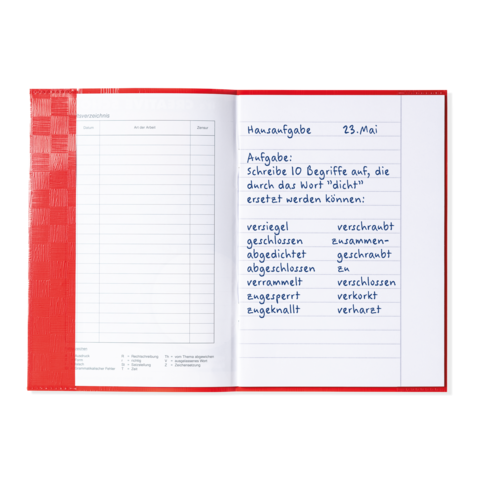 Datum
Art der Arbeit
Hausaufgabe 23.Mai
Aufgabe:
Schreibe 10 Begriffe auf, die
durch das Wort "dicht"
ersetzt werden können:
versiegel verschraubt
geschlossen zusammen-
abgedichtet geschraubt
abgeschlossen zu
verrammelt verschlossen
zugesperrt verkorkt
zugeknallt verharzt